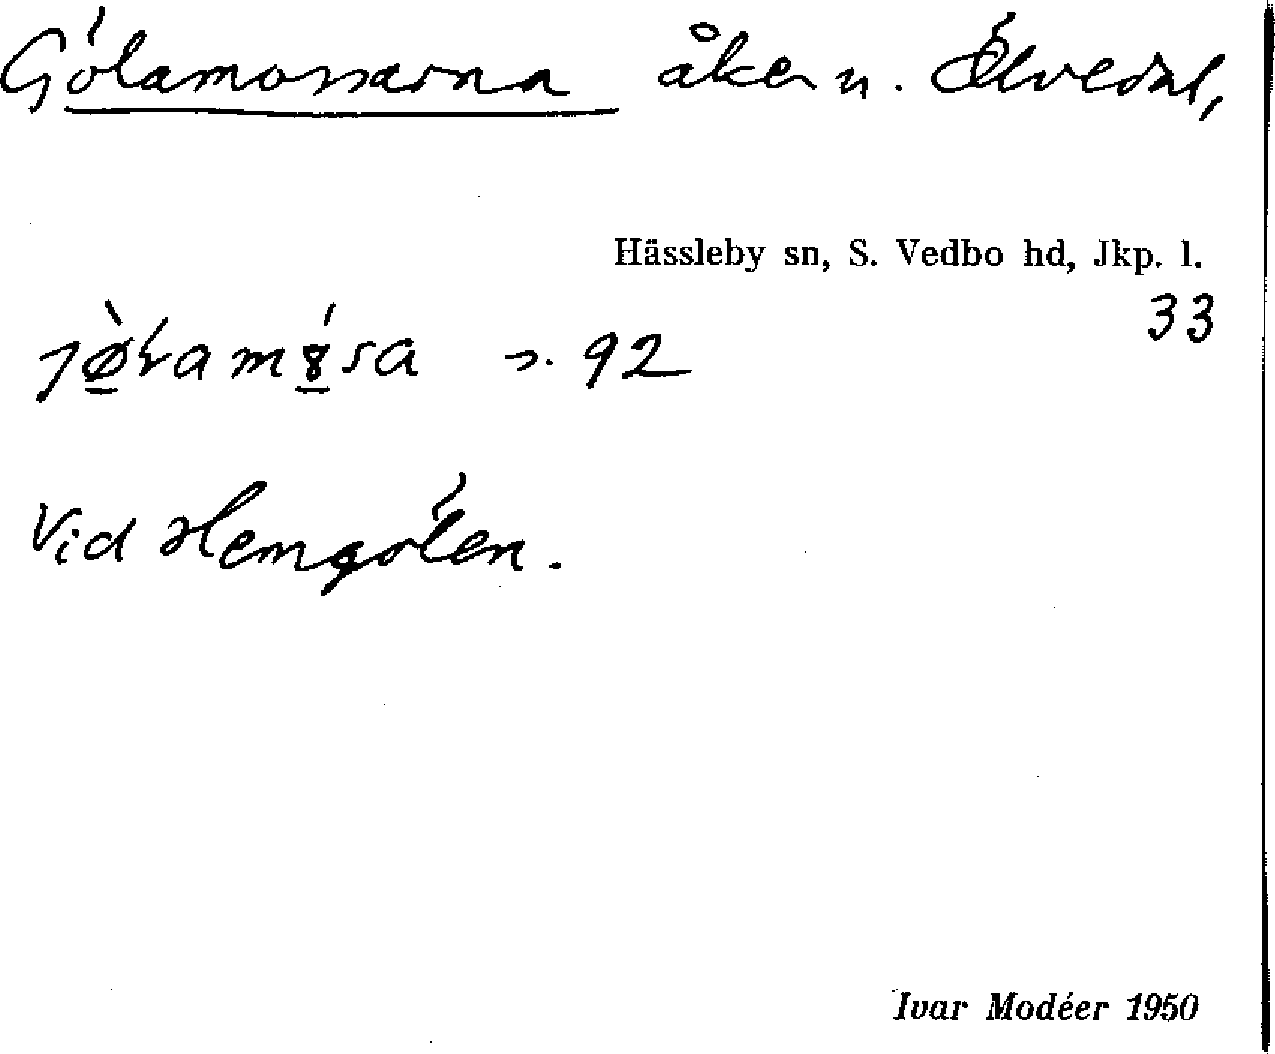 Gölamossarna åker u. Ölvedal,
Hässleby sn, S. Vedbo hd, Jkp. l.
33
92
Vid Hemgölen.
Ivar Modéer 1950